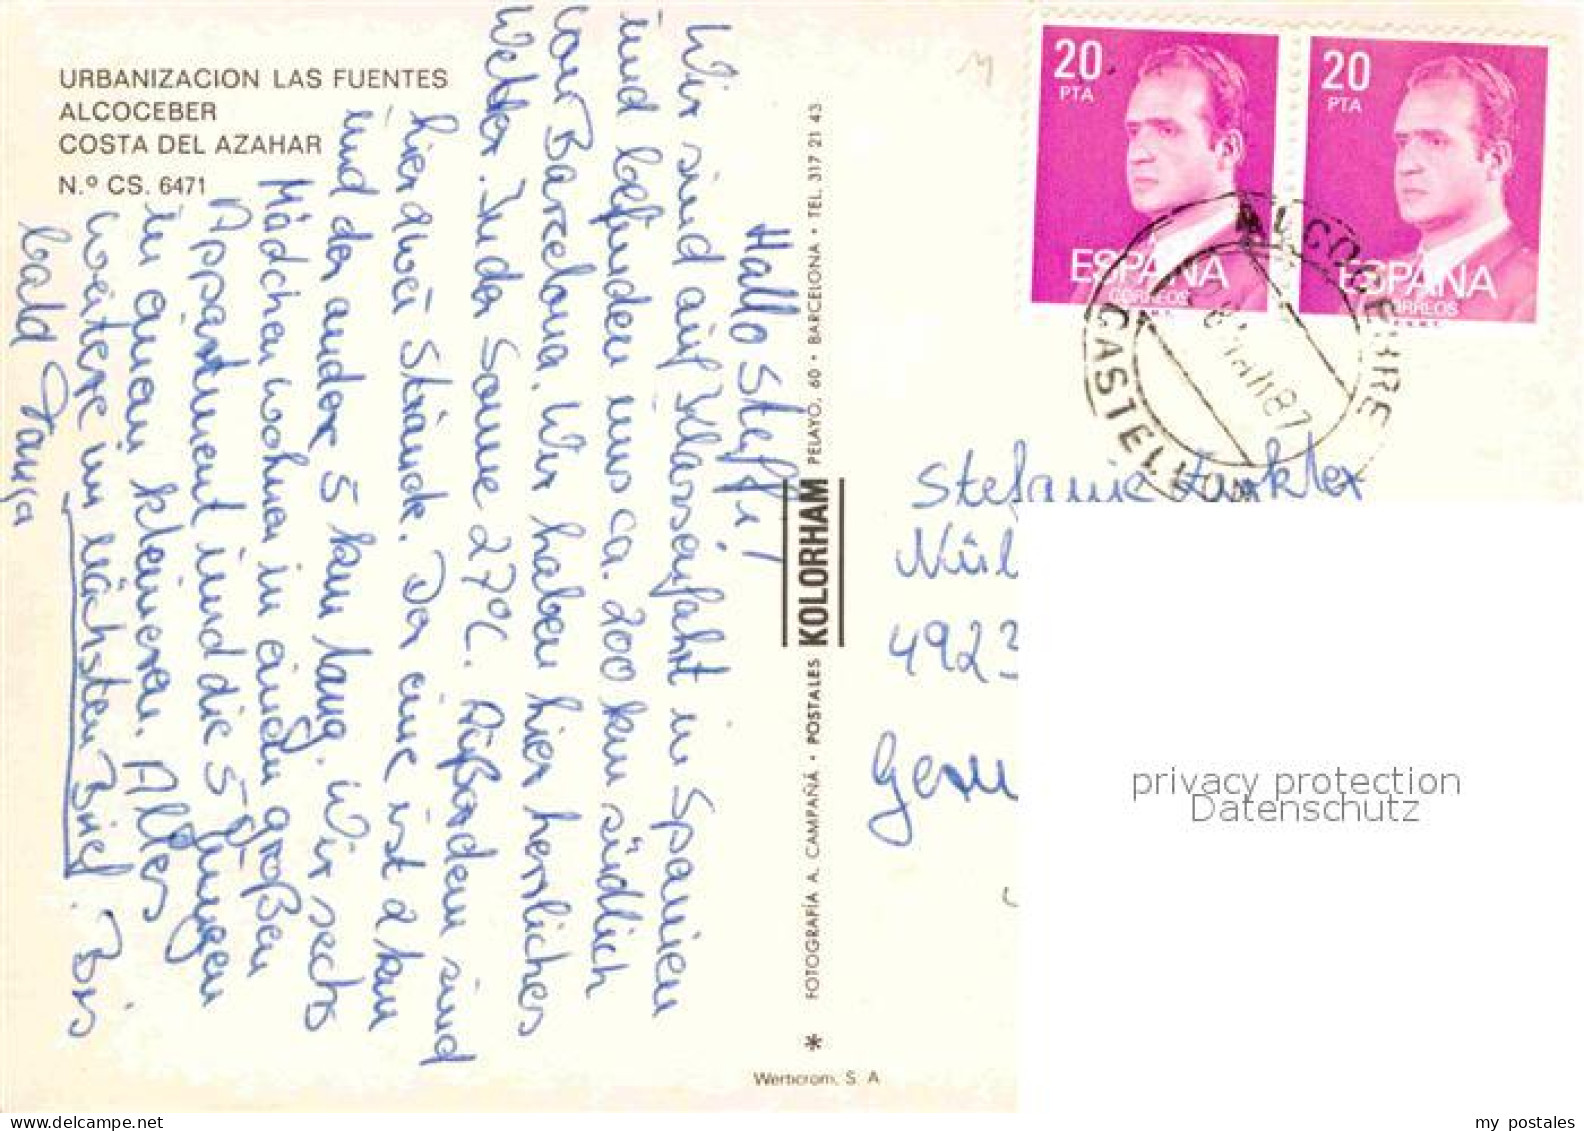 URBANIZACION LAS FUENTES
ALCOCEBER
COSTA DEL AZAHAR
N.º CS. 6471
Hallo Steffi!
Wir sind auf Klassenfahrt in Spanien
und befinden uns ca. 200 km südlich
von Barcelona. Wir haben hier herrliches
Wetter. In der Sonne 27°C. Außerdem sind
hier zwei Strände. Der eine ist 2 km
und der andere 5 km lang. Wir sechs
Mädchen wohnen in einem großen
Appartment und die 5 Jungen
in einem kleineren. Alles
weitere im nächsten Brief. Bis
bald Tanja
* FOTOGRAFÍA A. CAMPAÑÁ • POSTALES KOLORHAM PELAYO, 60 • BARCELONA • TEL. 317 21 43
Werticrom, S. A
20
PTA
ESPAÑA
CORREOS
F.N.M.T.
20
PTA
ESPAÑA
CORREOS
F.N.M.T.
ALCOCEBRE
CASTELLON
87
Stefanie
4923
privacy protection
Datenschutz
my postales